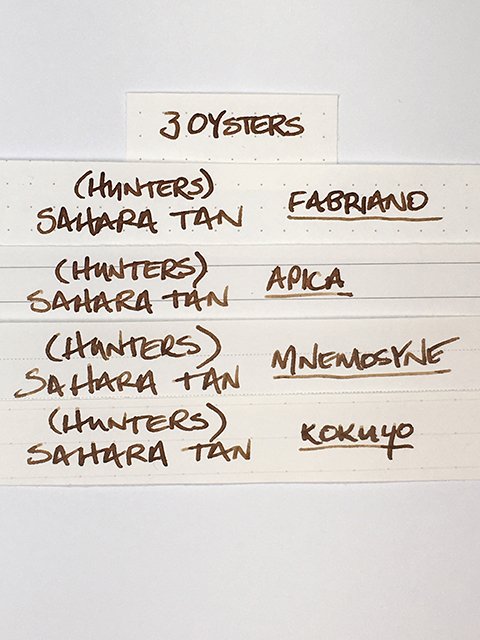 3 OYSTERS
(HUNTERS)
SAHARA TAN
FABRIANO
(HUNTERS)
SAHARA TAN
APICA
(HUNTERS)
SAHARA TAN
MNEMOSYNE
(HUNTERS)
SAHARA TAN
KOKUYO